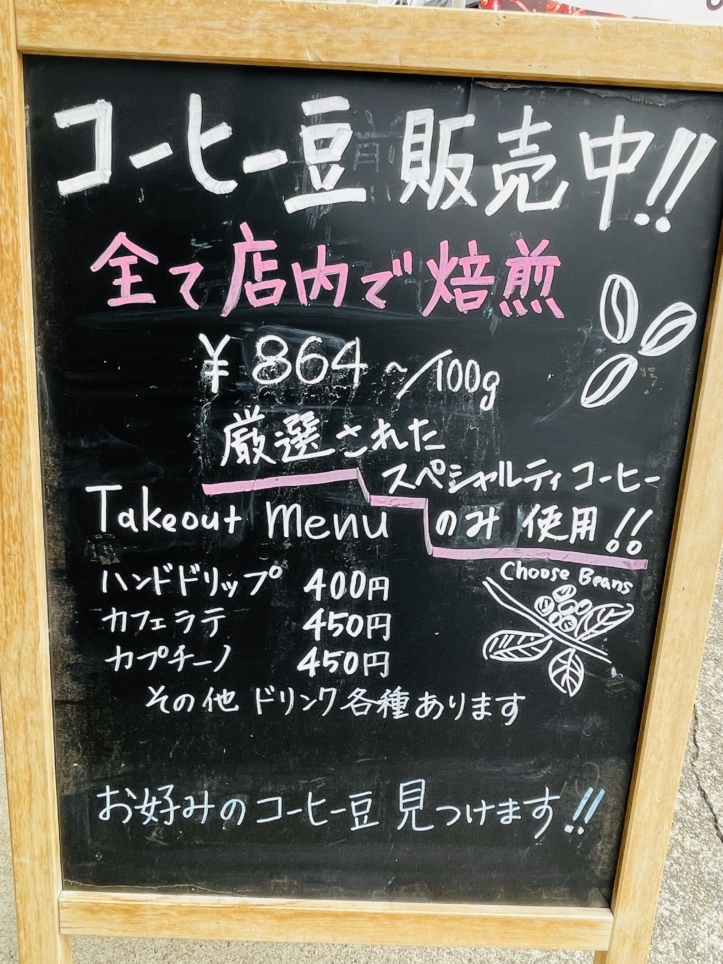 コーヒー豆 販売中!!
全て店内で焙煎
¥864~/100g
厳選された
スペシャルティコーヒー
のみ 使用!!
Takeout menu
Choose Beans
ハンドドリップ 400円
カフェラテ 450円
カプチーノ 450円
その他 ドリンク各種あります
お好みのコーヒー豆 見つけます!!